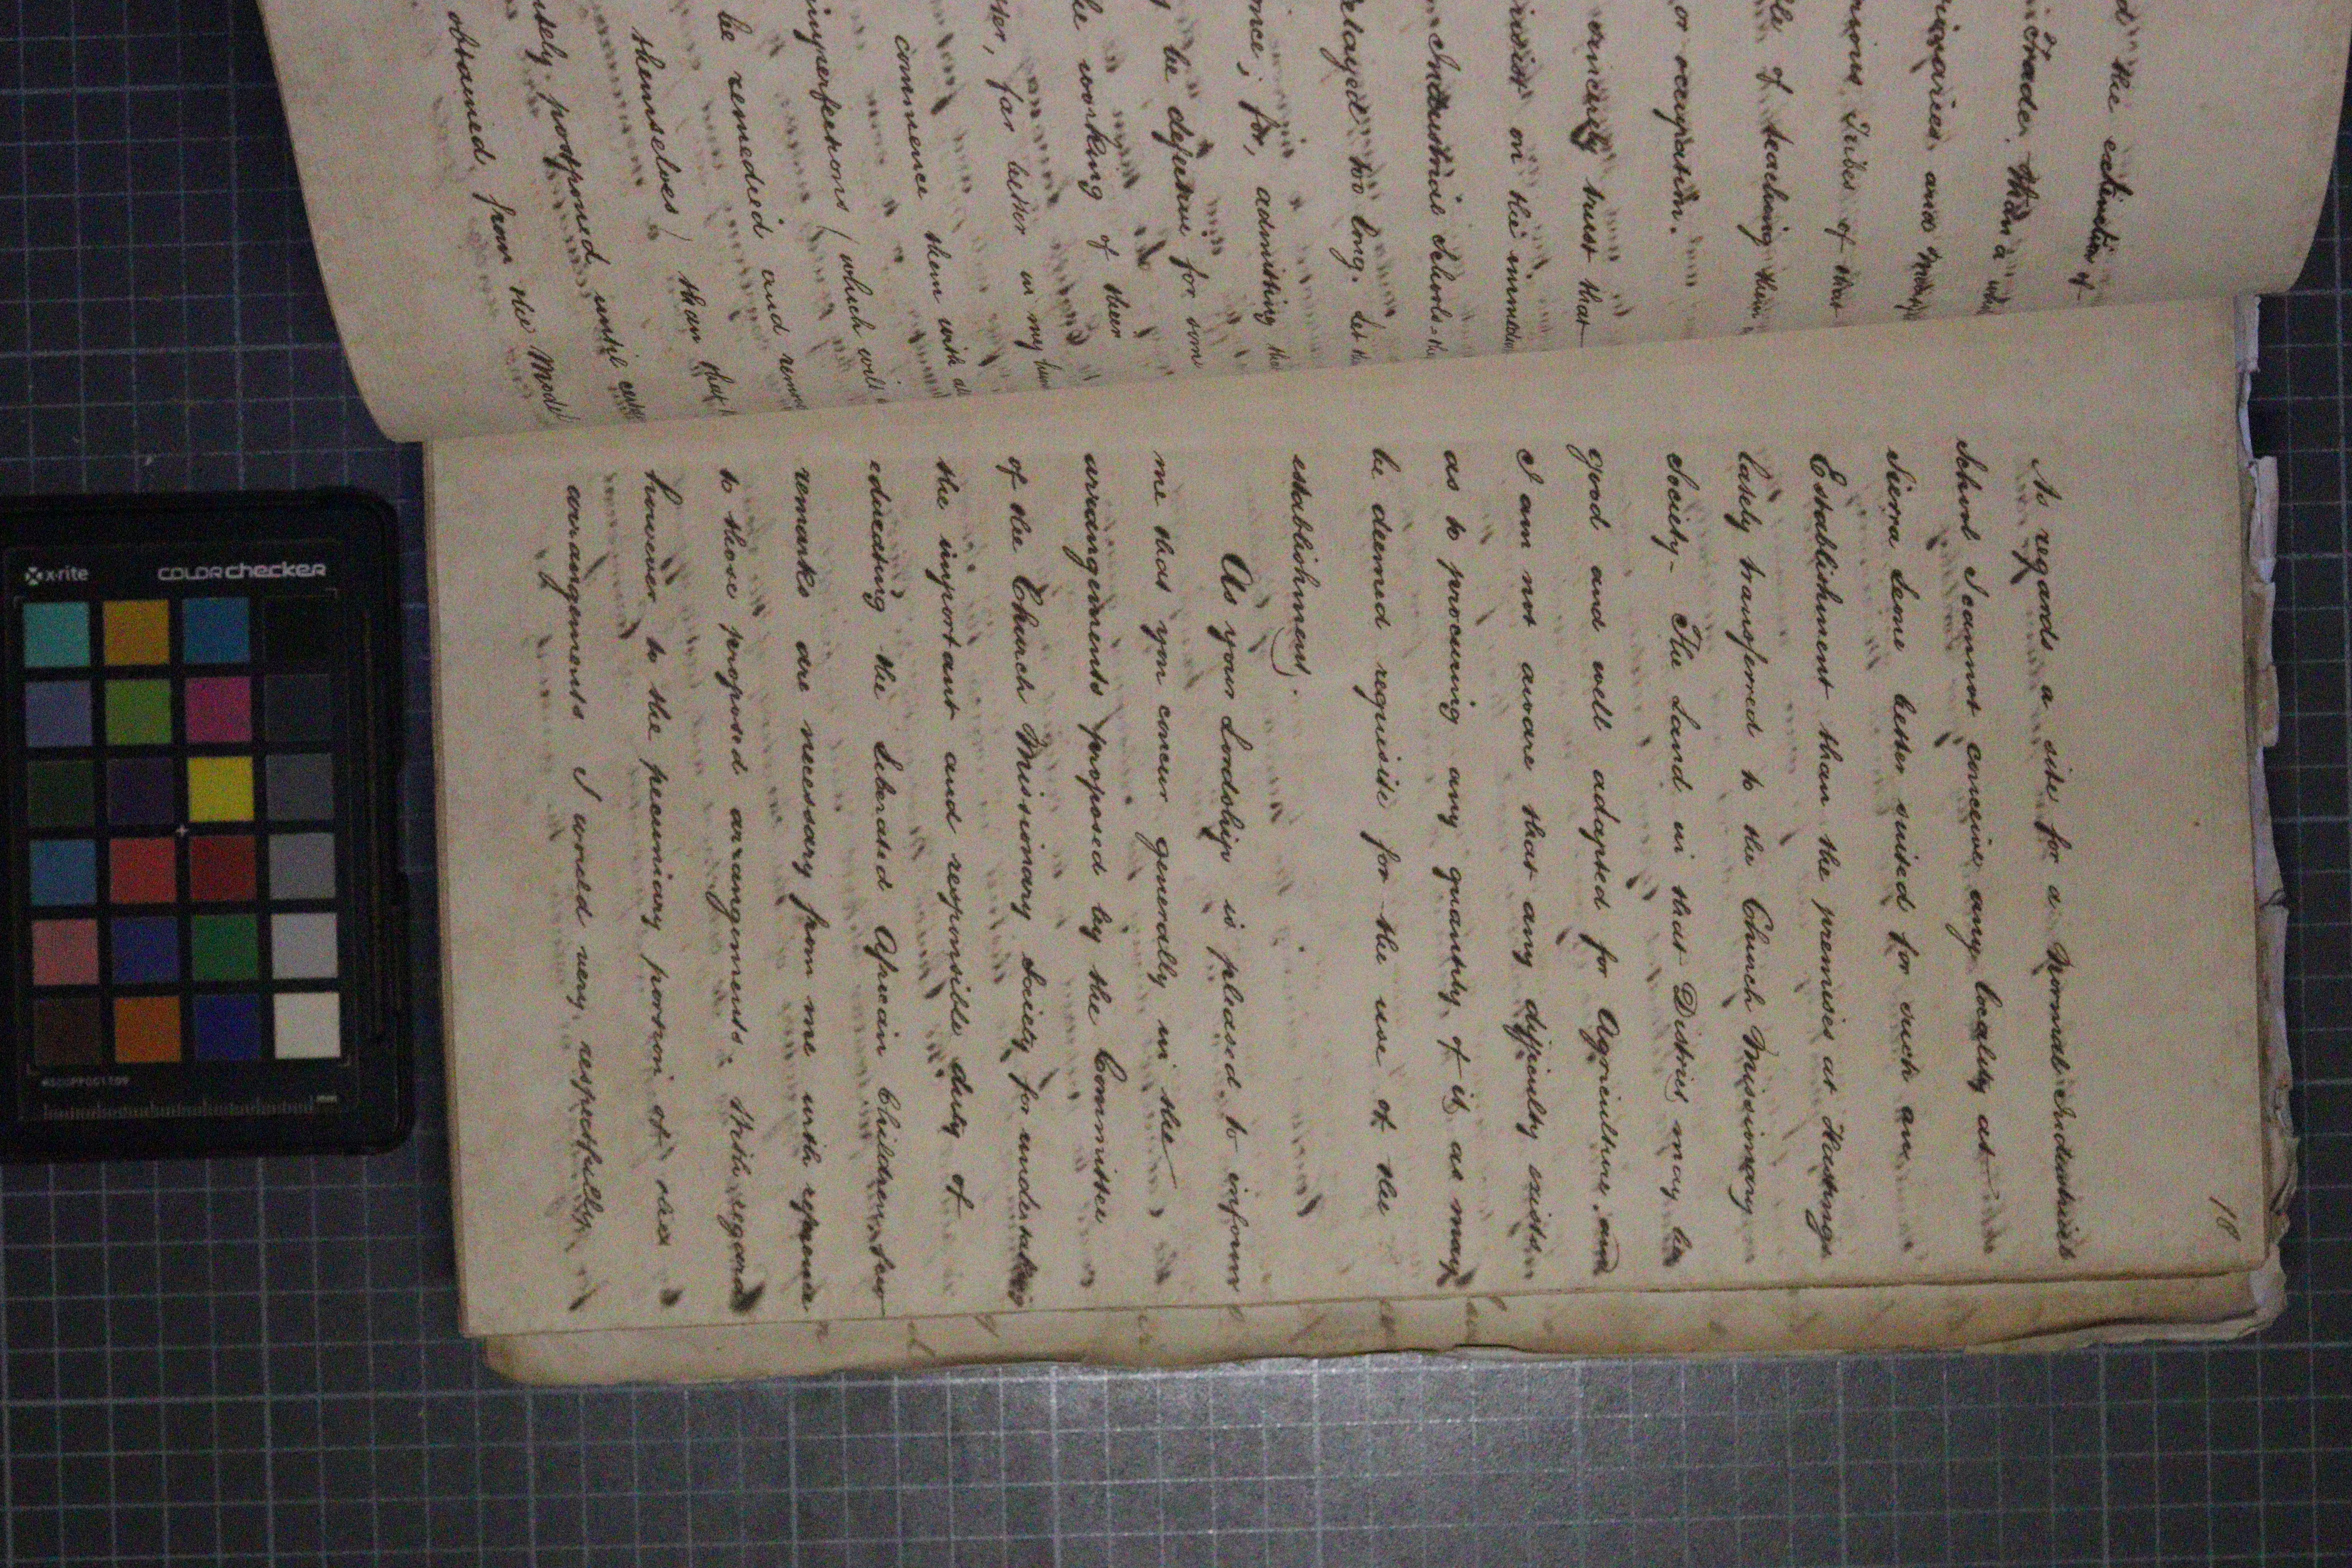 d the extinction of
Trader, than a
ionaries and
rious Tribes of that
le of teaching them
or occupation.
sincerely trust that
insist on the immedia
Industrial Schools-
elayed too long. Let
ence; for, admitting the
y be defective for some
he working of them
ter, far better in my
commence them with
imperfections (which will
be remedied and
themselves) than
itely postponed until
obtained, from the Model
18
As regards a site for a Normal Industrial
School I cannot conceive any locality at
Sierra Leone better suited for such an
Establishment than the premises at Hastings
lately transferred to the Church Missionary
Society- The Land in that District may be
good and well adapted for Agriculture, and
I am not aware that any difficulty exists
as to procuring any quantity of it as may
be deemed requisite for the use of the
establishment.
As your Lordship is pleased to inform
me that you concur generally in the
arrangements proposed by the Committee
of the Church Missionary Society for undertaking
the important and responsible duty of
educating the Liberated African Children, few
remarks are necessary from me with reference
to those proposed arrangements. With regard
however to the pecuniary portion of the
arrangements I would very respectfully
x-rite
COLORchecker
mm